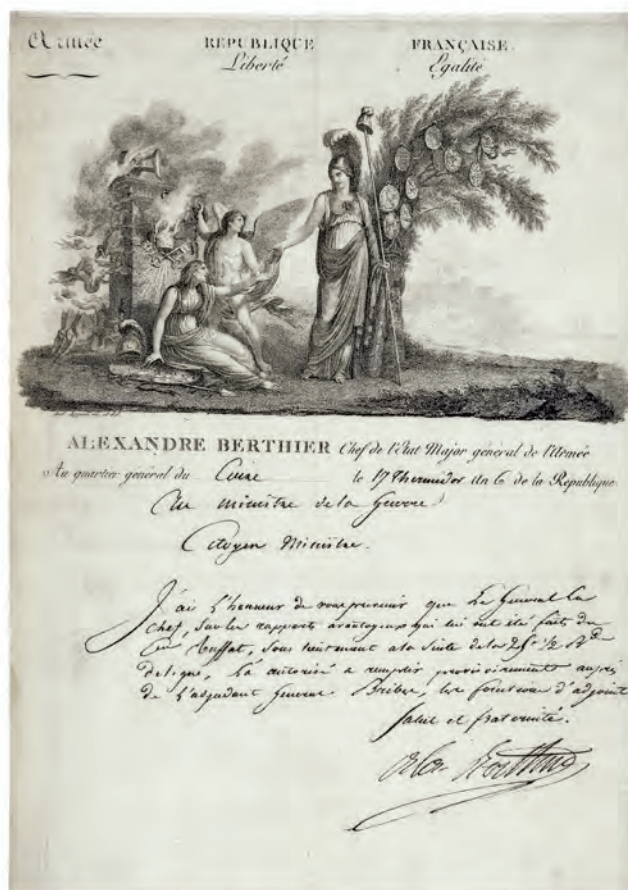 Armée REPUBLIQUE FRANÇAISE.
Liberté Egalité
ALEXANDRE BERTHIER Chef de l'Etat Major général de l'Armée
Au quartier général du Caire le 17 Thermidor An 6 de la République
Au ministre de la Guerre
Citoyen Ministre.
J'ai l'honneur de vous prevenir que Le Général En
chef, Sur les rapports avantageux qui lui ont été faits du
Cen Buffat, Sous lieutenant a la Suite de la 25e 1/2 Bde
de ligne, L'a autorisé a remplir provisoirement auprès
de L'adjudant General Bribes, les fonctions d'adjoint
Salut et fraternité.
Alex Berthier